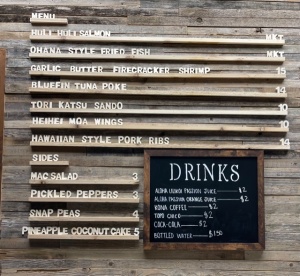 MENU
HULI HULI SALMON MKT
OHANA STYLE FRIED FISH MKT
GARLIC BUTTER FIRECRACKER SHRIMP 15
BLUEFIN TUNA POKE 14
TORI KATSU SANDO 10
HEIHEI MOA WINGS 10
HAWAIIAN STYLE PORK RIBS 14
SIDES
MAC SALAD 3
PICKLED PEPPERS 3
SNAP PEAS 4
PINEAPPLE COCONUT CAKE 5
DRINKS
ALOHA LILIKOI PASSION JUICE $2
ALOHA PASSION ORANGE JUICE $2
KONA COFFEE $2
TOPO CHICO $2
COCA-COLA $2
BOTTLED WATER $1.50